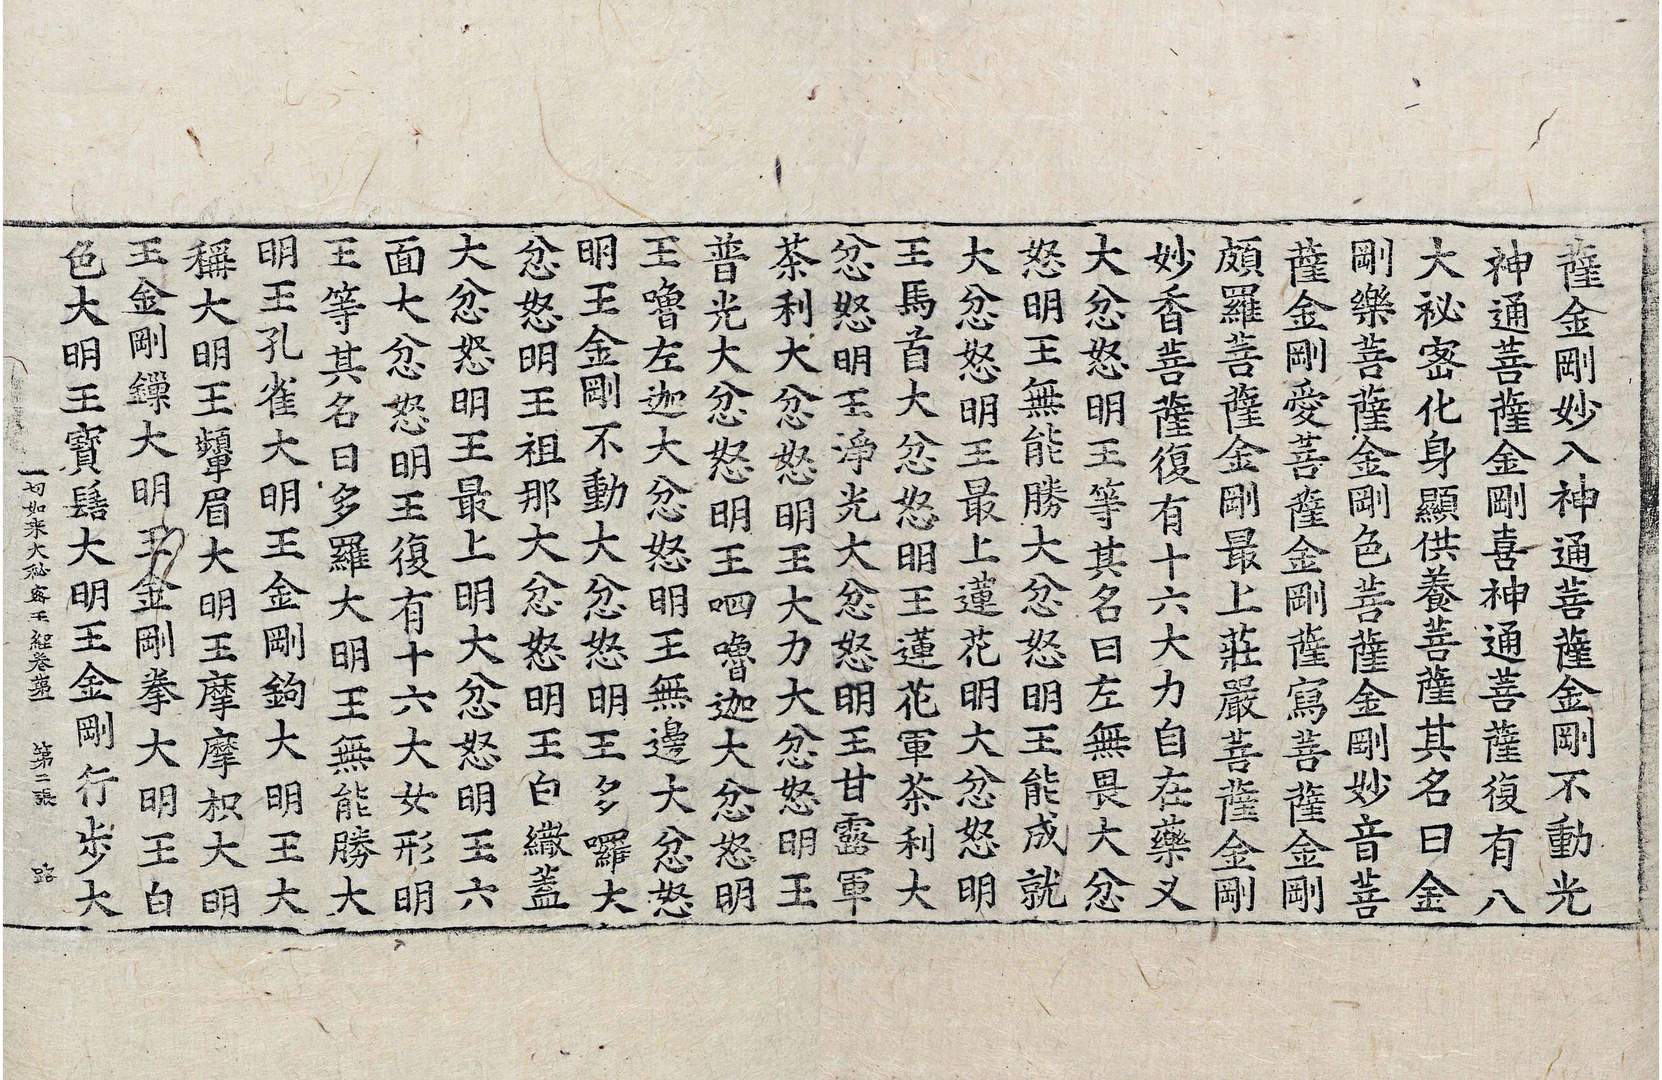 薩金剛妙入神通菩薩金剛不動光
神通菩薩金剛喜神通菩薩復有八
大祕密化身顯供養菩薩其名曰金
剛樂菩薩金剛色菩薩金剛妙音菩
薩金剛愛菩薩金剛薩寫菩薩金剛
頗羅菩薩金剛最上莊嚴菩薩金剛
妙香菩薩復有十六大力自在藥叉
大忿怒明王等其名曰左無畏大忿
怒明王無能勝大忿怒明王能成就
大忿怒明王最上蓮花明大忿怒明
王馬首大忿怒明王蓮花軍荼利大
忿怒明王淨光大忿怒明王甘露軍
荼利大忿怒明王大力大忿怒明王
普光大忿怒明王呬嚕迦大忿怒明
王嚕左迦大忿怒明王無邊大忿怒
明王金剛不動大忿怒明王多囉大
忿怒明王祖那大忿怒明王白繖蓋
大忿怒明王最上明大忿怒明王六
面大忿怒明王復有十六大女形明
王等其名曰多羅大明王無能勝大
明王孔雀大明王金剛鉤大明王大
稱大明王顰眉大明王摩摩枳大明
王金剛鏁大明王金剛拳大明王白
色大明王寶髻大明王金剛行步大
一切如来大秘密王經卷苐一 苐二張 路